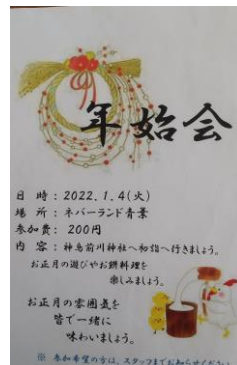 年始会
日 時：2022.1.4(火)
場 所：ネバーランド青葉
参加費：200円
内 容：神鳥前川神社へ初詣へ行きましょう。
お正月の遊びやお餅料理を
楽しみましょう。
お正月の雰囲気を
皆で一緒に
味わいましょう。
※ 参加希望の方は、スタッフまでお知らせください